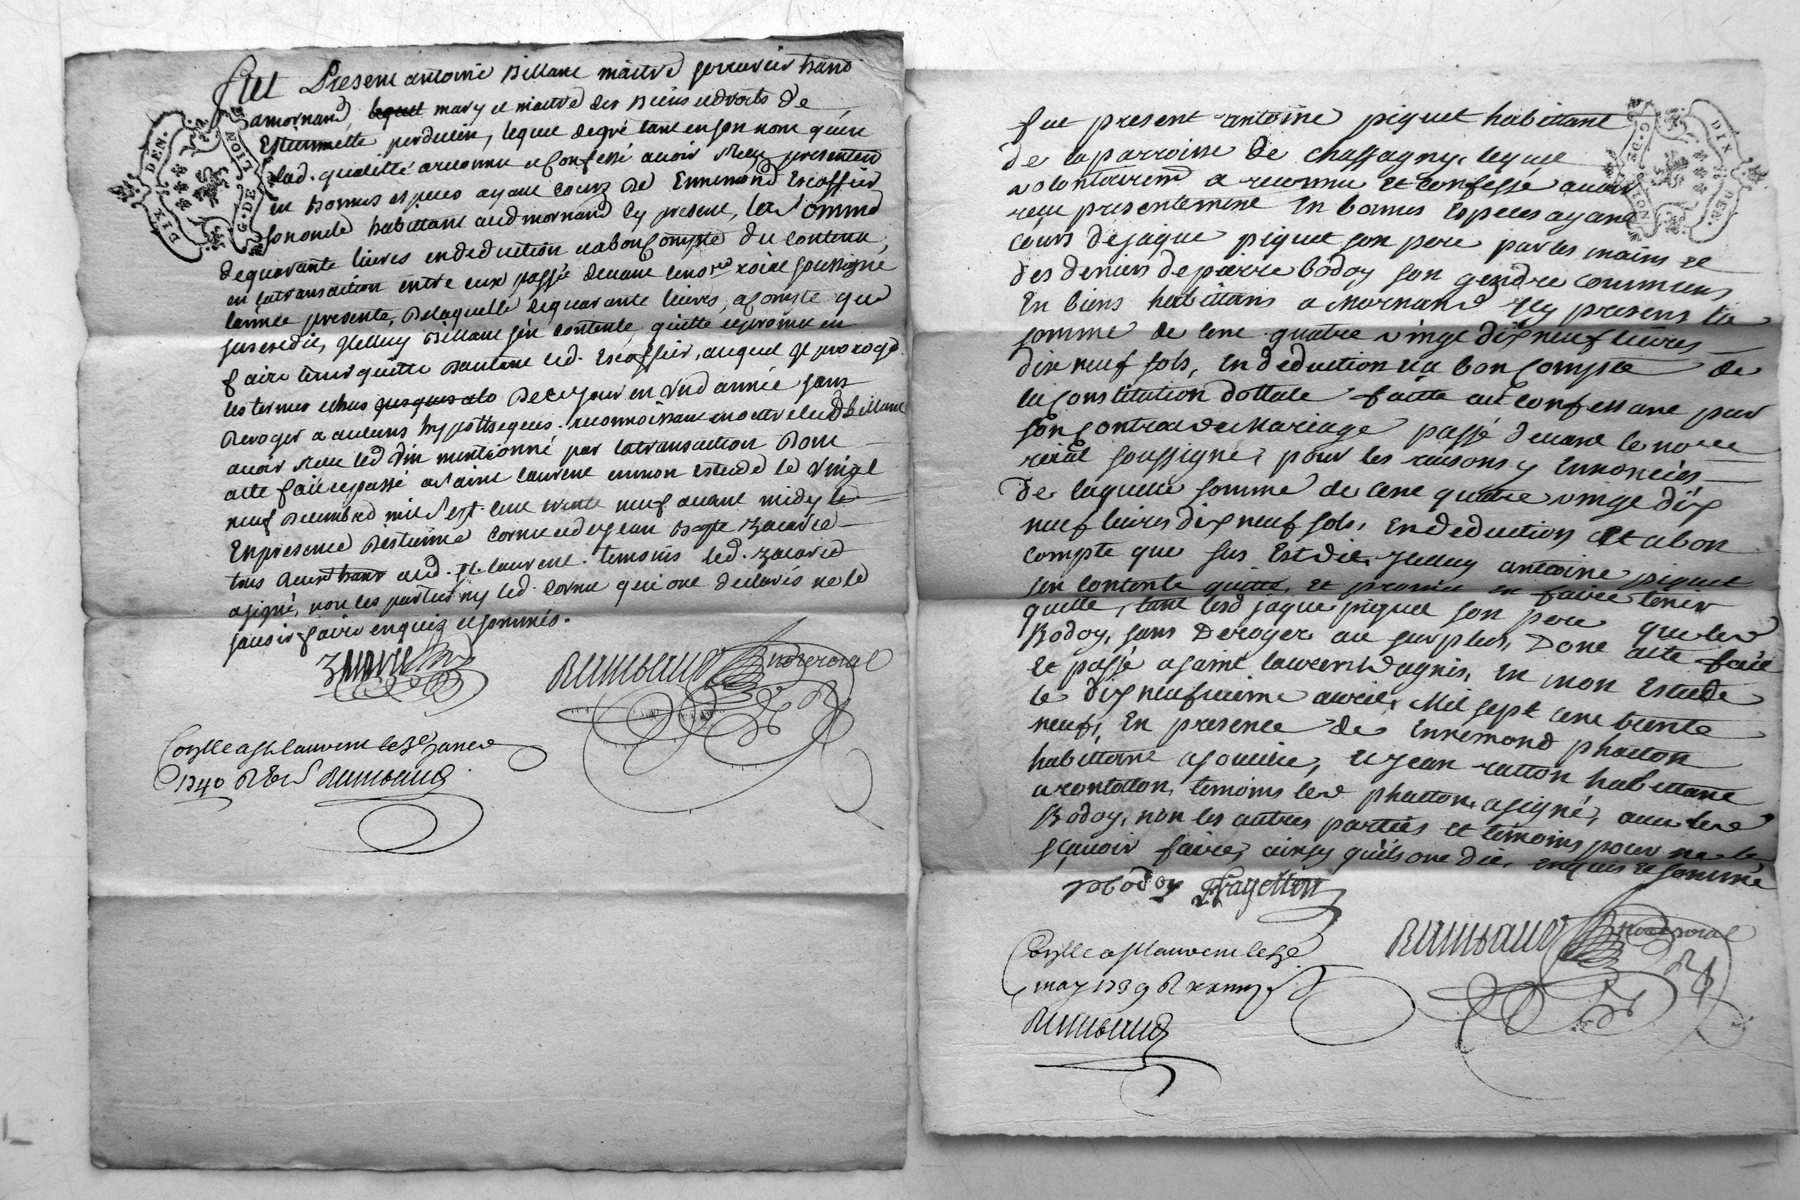 G. DE LION
DIX DEN.
fut Present antoine Billane maitre serrurier habt
amornand, lequel mary et maitre des Biens et droits de
Estiennette perdulin, lequel degré tant en son nom qu'en
lad. qualitté a reconnu et confessé avoir Reçu presentem
en bonnes especes ayant cours De Ennemond Escoffier
son oncle habittant aud mornand icy present, la Somme
de quarante livres en deduction et a bon Compte du contenu
en la transaction entre eux passée devant le nore roial soussigné
l'année presente, De laquelle de quarante livres, a compte que
sus est dit, Jcelluy Billane s'en contente, quitte et promet en
faire tenir quitte partout led. Escoffier, auquel Jl proroge
les termes echus jusques alo De ce jour en Und année sans
Deroger a aucuns hypotheques. reconnoissant en outre led Billane
avoir Reçu led Vin mentionné par la transaction Dont
acte fait et passé a saint laurent en mon Estude le Vingt
neuf Decembre mil Sept cent trente neuf avant midy le
En presence D'estienne Cornu et de Jean Bapte Zacarie
tous Deux habt aud. St laurent. temoins led. Zacarie
a signé, non les parties ny led. Cornu qui ont declarés ne le
sçavoir faire enquis et sommés.
Zacarie
Rambaud nore roial
Conllé a St laurent le 3e Janer
1740 R
Rambaud
G. DE LION
DIX DEN.
fut present antoine piquet habittant
de la parroisse de chassagny, lequel
volontairemt a reconnu et confessé avoir
reçu presentement En bonnes Especes ayant
cours de jaque piquet son pere par les mains et
des deniers de pierre bodoy son gendre communs
En biens habittans a Mornand icy presens la
somme de Cent quatre vingt dix neuf livres
dix neuf sols, En deduction et a bon Compte de
la Constitution dottale faitte au Confessant par
son Contract de Mariage passé devant le nore
roial soussigné, pour les raisons y Ennoncées
De laquelle somme de Cent quatre vingt dix
neuf livres dix neuf sols, En deduction Et a bon
compte que sus Est dit, Jcelluy antoine piquet
s'en contente quitte, et promet en faire tenir
quitte, tant led jaque piquet son pere que led
Bodoy, sans Deroger au surplus, Dont acte fait
Et passé a saint laurent Dagnis, En mon Estude
le dix neufvieme avril, Mil sept cent trente
neuf, En presence de Ennemond phatton
habittant a soucieu, et jean ratton habittant
a rontatton, temoins led phatton, a signé, avec led
Bodoy, non les autres parties et temoins pour ne le
sçavoir faire, ainsy qu'ils ont dit, enquis et sommés
Bodoy Frayetton
Rambaud nore roial
Conllé a St laurent le 3e
may 1739 R
Rambaud